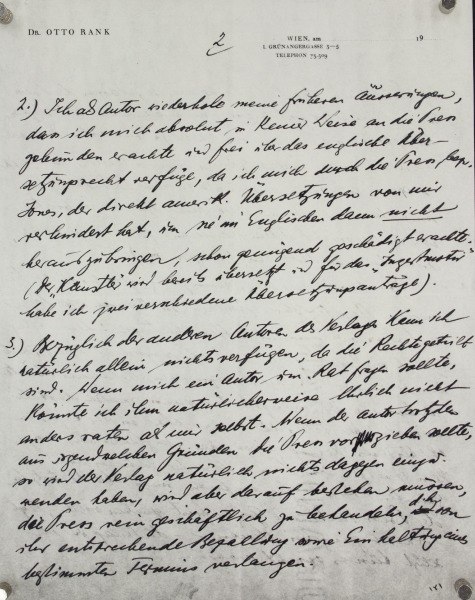 DR. OTTO RANK
2
WIEN, am
19
I. GRÜNANGERGASSE 3—5
TELEPHON
2.) Ich als Autor wiederhole meine früheren Äusserungen,
dass ich mich absolut, in keiner Weise an die Press
gebunden erachte und frei über das englische Über-
setzungsrecht verfüge, da ich mich durch die Press, bezw.
Jones, der direkt amerik. Übersetzungen von mir
verhindert hat, um sie im Englischen dann nicht
herauszubringen, schon genügend geschädigt erachte.
(Der "Künstler" wird bereits übersetzt und für das "Inzestmotiv"
habe ich zwei verschiedene Übersetzungsanträge).
3.) Bezüglich der anderen Autoren des Verlages kann ich
natürlich allein nichts verfügen, da die Rechte geteilt
sind. Wenn mich ein Autor um Rat fragen sollte,
könnte ich ihm natürlicherweise ehrlich nicht
anders raten als mir selbst. Wenn der Autor trotzdem
aus irgendwelchen Gründen die Press vorziehen sollte,
so wird der Verlag natürlich nichts dagegen einzu-
wenden haben, wird aber darauf bestehen müssen,
die Press rein geschäftlich zu behandeln, und von
ihr entsprechende Bezahlung sowie Einhaltung eines
bestimmten Termins verlangen.